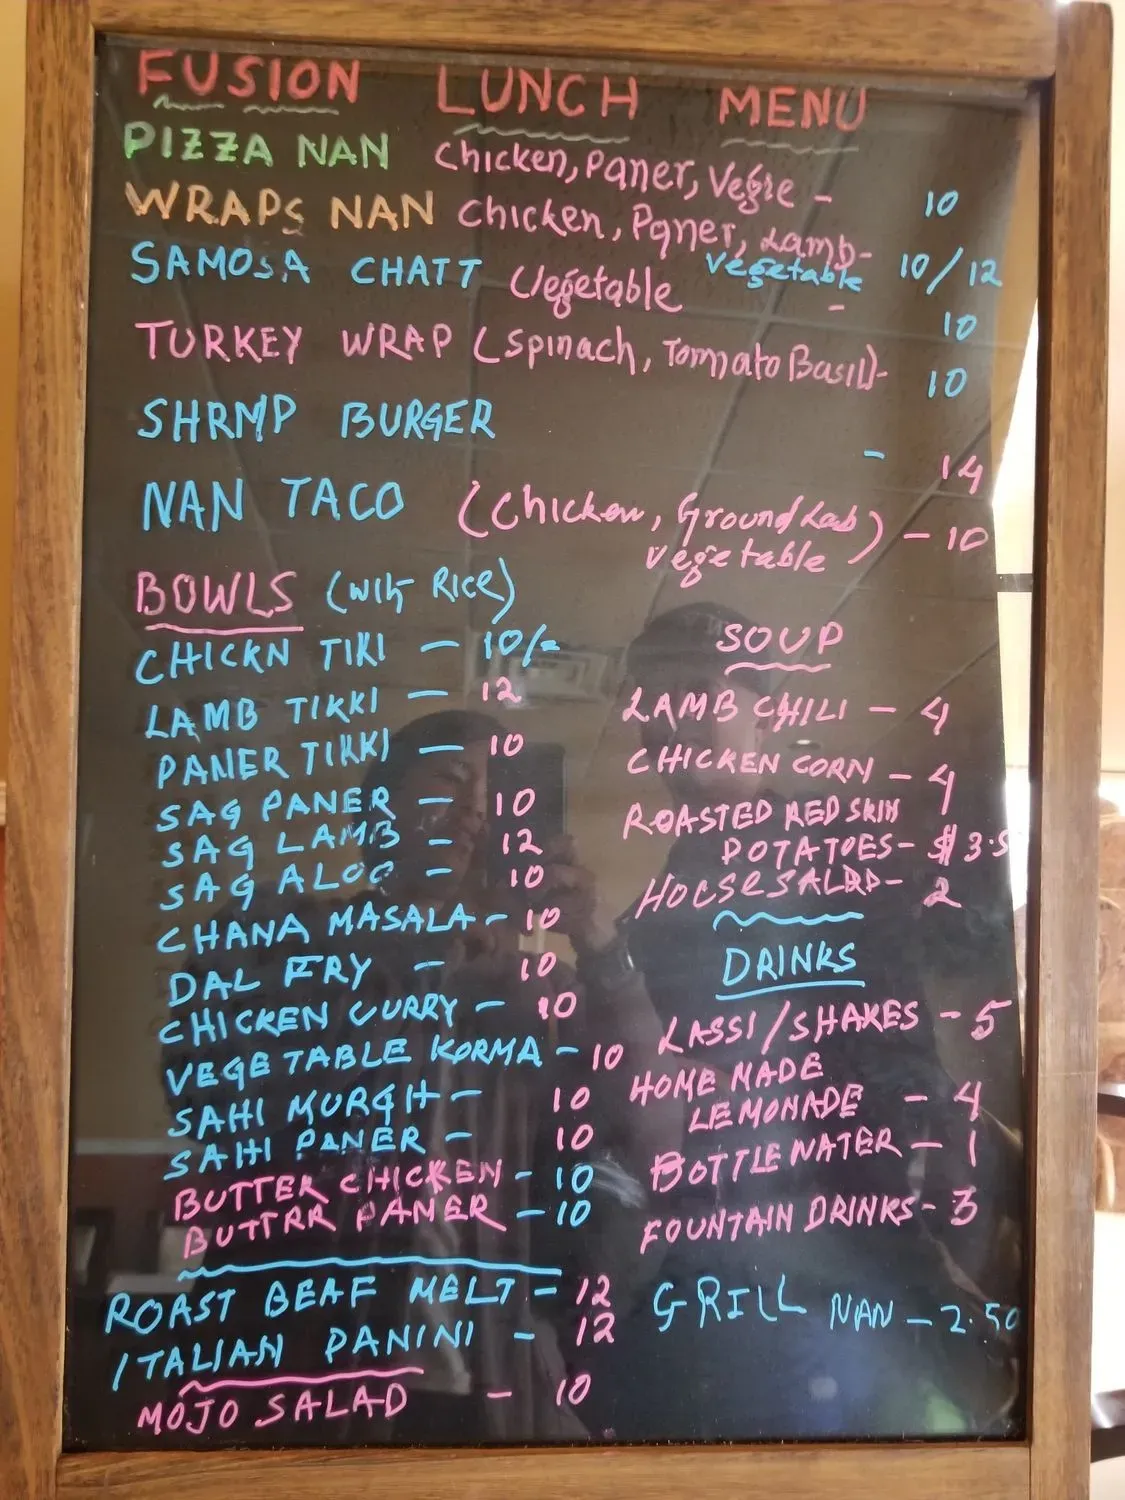 FUSION LUNCH MENU
PIZZA NAN Chicken, Paner, Veggie - 10
WRAPS NAN Chicken, Paner, Lamb - 10/12
Vegetable
SAMOSA CHATT Vegetable - 10
TURKEY WRAP (Spinach, Tomato Basil) - 10
SHRMP BURGER - 14
NAN TACO (Chicken, Ground Lab) - 10
vegetable
BOWLS (with RICE)
CHICKN TIKI - 10/=
LAMB TIKKI - 12
PANER TIKKI - 10
SAG PANER - 10
SAG LAMB - 12
SAG ALOO - 10
CHANA MASALA - 10
DAL FRY - 10
CHICKEN CURRY - 10
VEGETABLE KORMA - 10
SAHI MURGH - 10
SAHI PANER - 10
BUTTER CHICKEN - 10
BUTTRR PANER - 10
ROAST BEAF MELT - 12
ITALIAN PANINI - 12
MOJO SALAD - 10
SOUP
LAMB CHILI - 4
CHICKEN CORN - 4
ROASTED RED SKIN
POTATOES - $3.5
HOUSE SALAD - 2
DRINKS
LASSI/SHAKES - 5
HOME MADE
LEMONADE - 4
BOTTLE WATER - 1
FOUNTAIN DRINKS - 3
GRILL NAN - 2.50